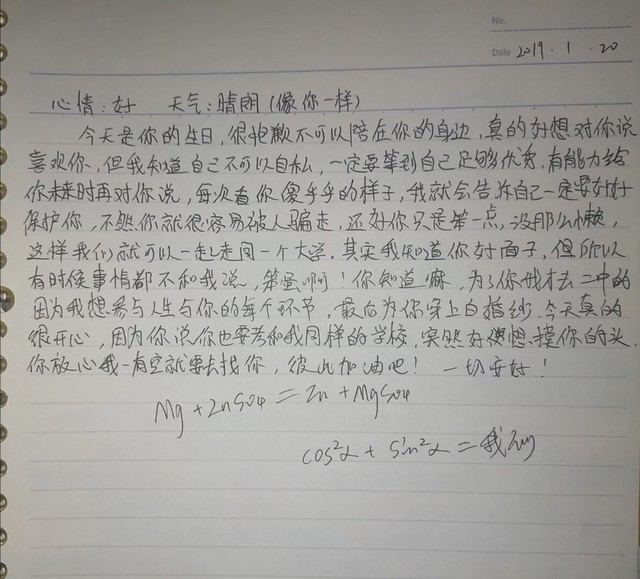 No.
Date 2019.1.20
心情:好 天气:晴朗(像你一样)
今天是你的生日,很抱歉不可以陪在你的身边,真的好想对你说
喜欢你,但我知道自己不可以自私,一定要等到自己足够优秀,有能力给
你未来时再对你说,每次看你傻乎乎的样子,我就会告诉自己一定要好好
保护你,不然你就很容易被人骗走,还好你只是笨一点,没那么懒,
这样我们就可以一起走同一个大学.其实我知道你好面子,但所以
有时候事情都不和我说,笨蛋啊!你知道嘛,为了你我才去二中的
因为我想参与人生与你的每个环节,最后为你穿上白婚纱.今天真的
很开心,因为你说你也要考和我同样的学校,突然好想摸你的头.
你放心我一有空就要去找你,彼此加油吧! 一切安好!
Mg+ZnSO4=Zn+MgSO4
cos²α+sin²α=我